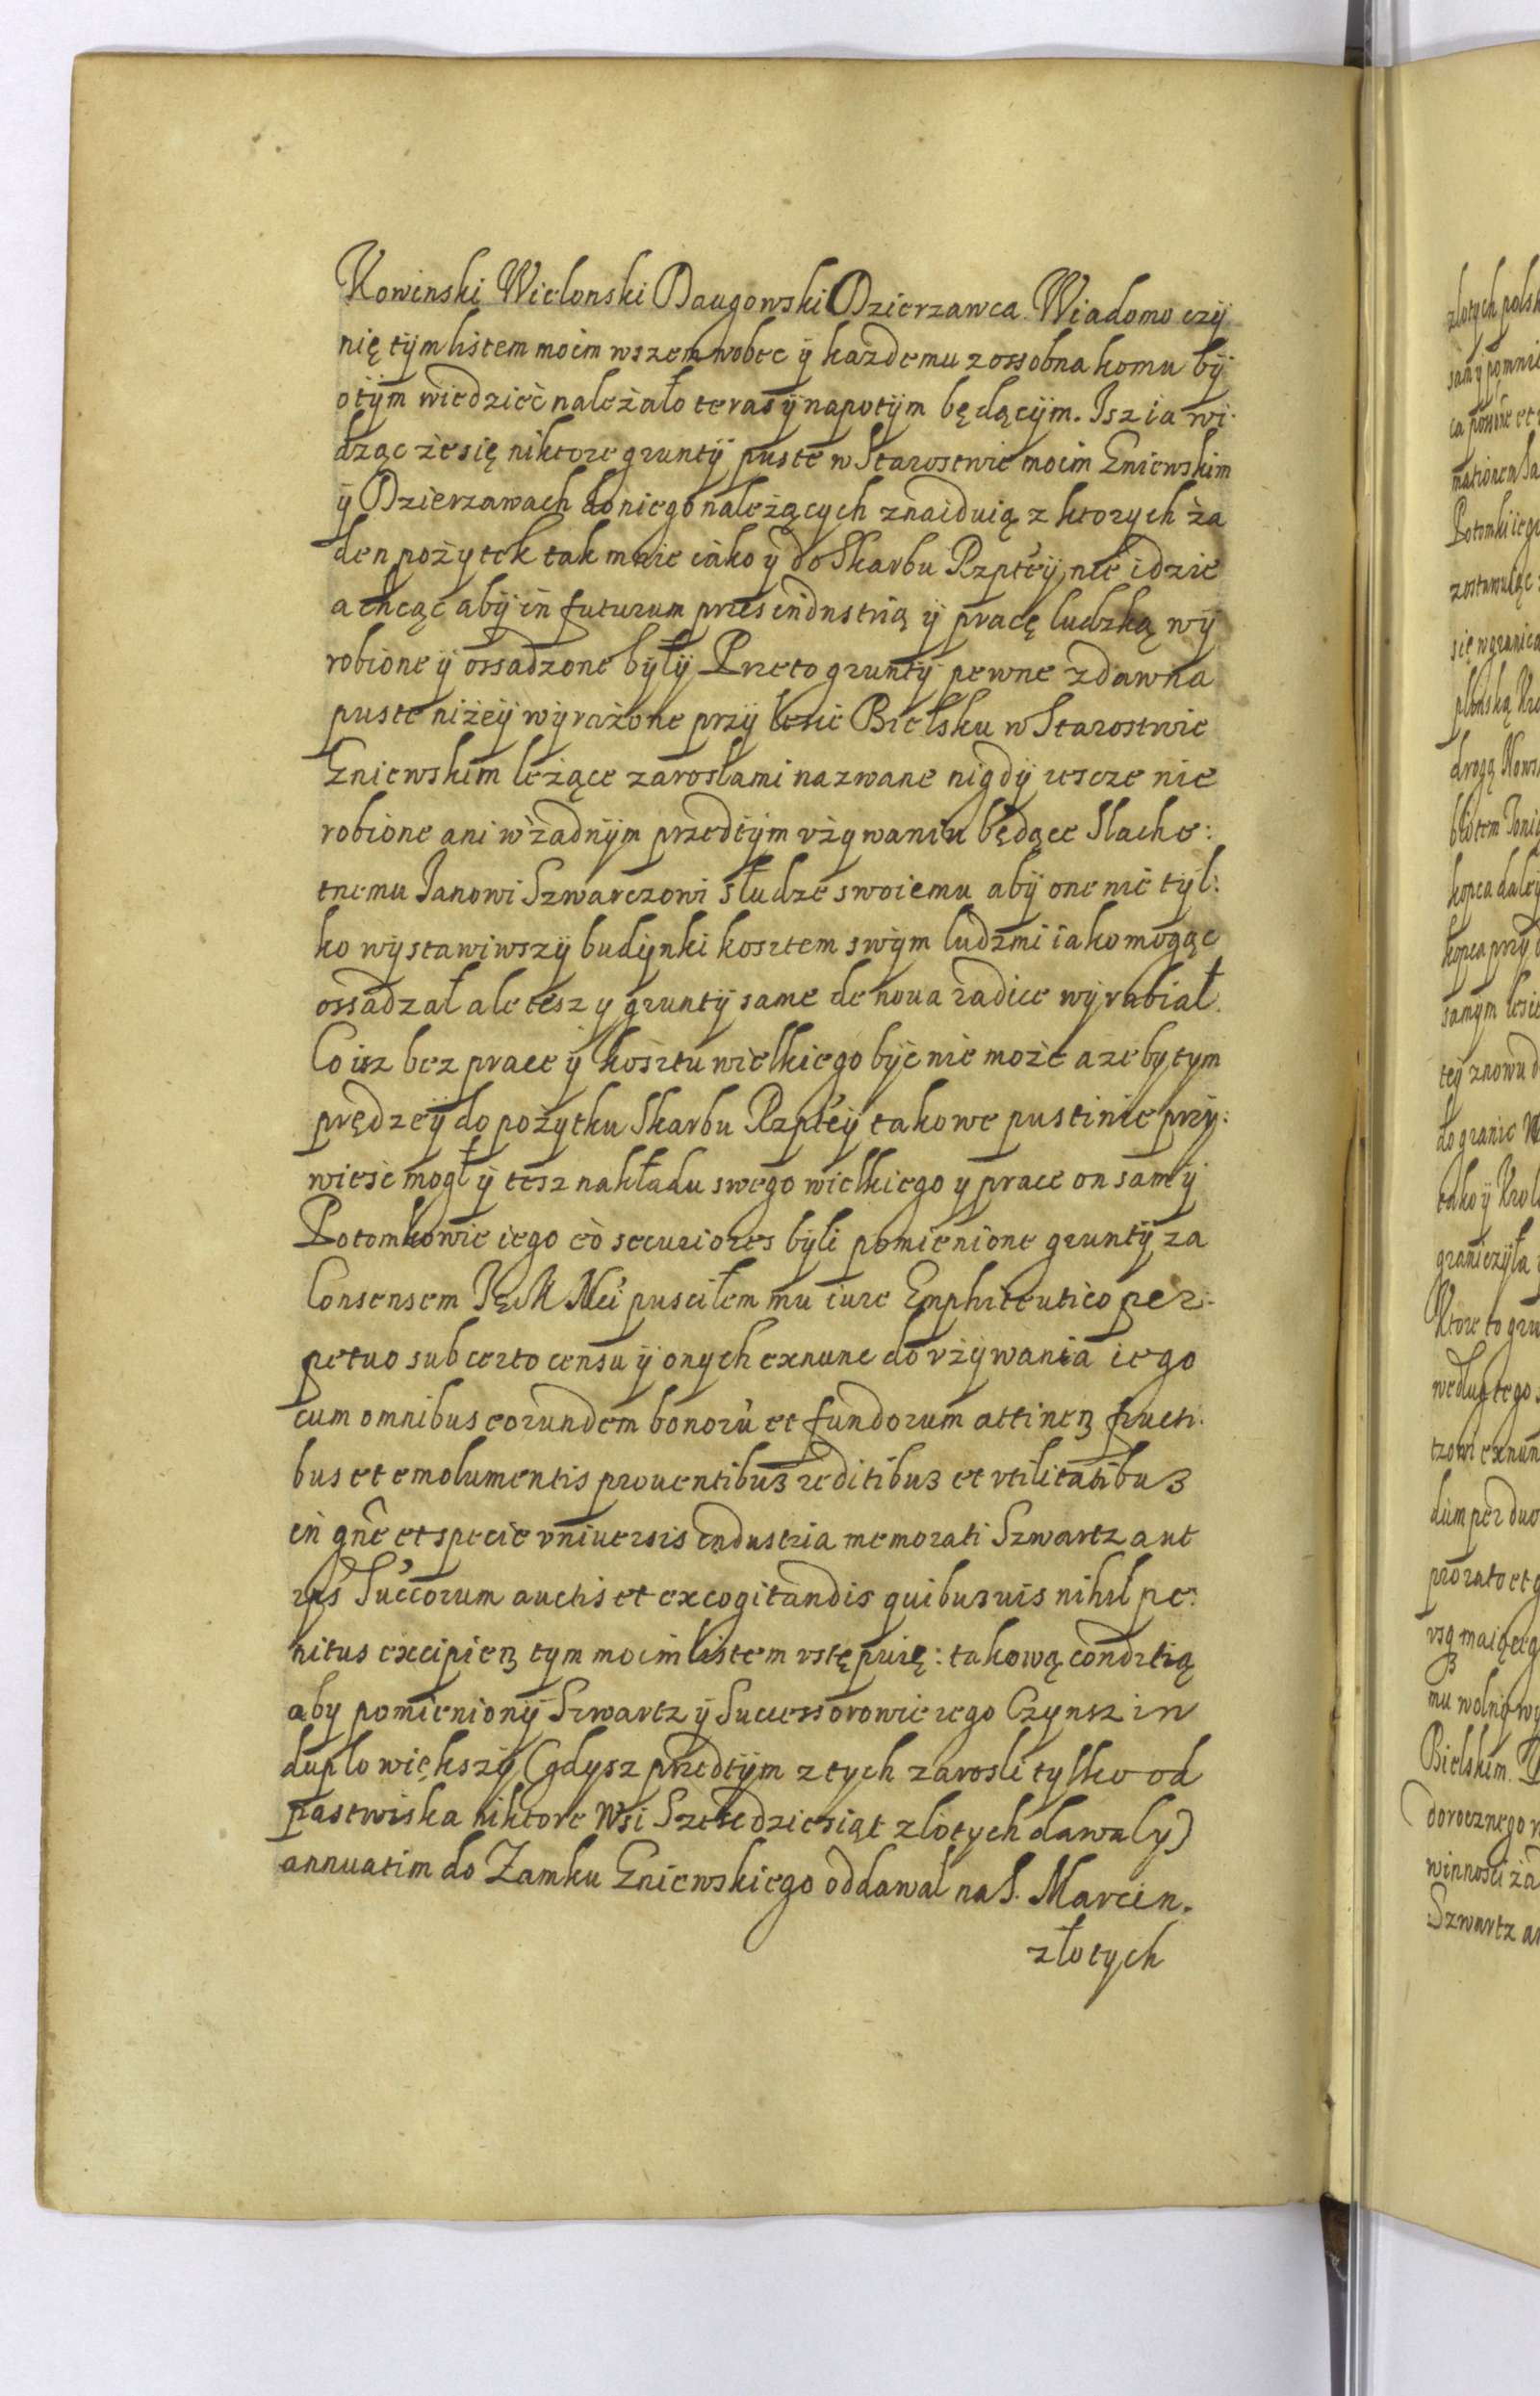 Kowinski Wielonski Daugowski Dzierzawca. Wiadomo czÿ
nię tÿm listem moim wszem wobec ÿ każdemu zossobna komu bÿ
o tÿm wiedzieć należało teras ÿ napotÿm będącÿm. Isz ia wi-
dząc że się niktore gruntÿ puste w Starostwie moim Gniewskim
ÿ Dzierzawach do niego należących znaiduią z ktorych ża
den pożytek tak mnie iako ÿ do Skarbu Rzptéÿ nie idzie
a chcąc abÿ in futurum przes industrią ÿ pracę ludzką wÿ
robione ÿ ossadzone bÿłÿ Przeto gruntÿ pewne zdawna
puste niżeÿ wÿrażone przÿ lesie Bielsku w Starostwie
Gniewskim leżące zarosłami nazwane nigdÿ iescze nie
robione ani w żadnÿm przedtÿm vżywaniu będące Slache:
tnemu Janowi Szwarczowi słudze swoiemu abÿ one nie tÿl:
ko wÿstawiwszÿ budÿnki kosztem swÿm ludzmi iako mogąc
ossadzał ale tesz y gruntÿ same de noua radice wÿrabiał.
Co isz bez prace ÿ kosztu wielkiego bÿć nie może a zeby tym
prędzeÿ do pożytku Skarbu Rzptéÿ takowe pustinie przÿ:
wieść mogł ÿ tesz nakładu swego wielkiego y prace on sam ÿ
Potomkowie iego eò securiores bÿli pomienione gruntÿ za
Consensem J K M Nći puściłem mu iure Emphiteutico per:
petuo sub certo censu ÿ onych exnunc do vżÿwania iego
cum omnibus eorundem bonorū et fundorum attinenꝫ fructi-
bus et emolumentis prouentibus reditibus et vtilitatibus
in gn̂e et specie vniuersis industria memorati Szwartz aut
ips̓ Succorum auctis et excogitandis quibusuis nihil pe:
nitus excipienꝫ tym moim listem vstępuię: takową conditią
aby pomienionÿ Szwartz ÿ Successorowie iego Czynsz in
duplo większÿ (gdysz przedtÿm z tych zarosli tylko od
pastwiska niktore Wsi Szescdziesiąt złotych dawaly)
annuatim do Zamku Gniewskiego oddawał na S. Marcin.
złotych